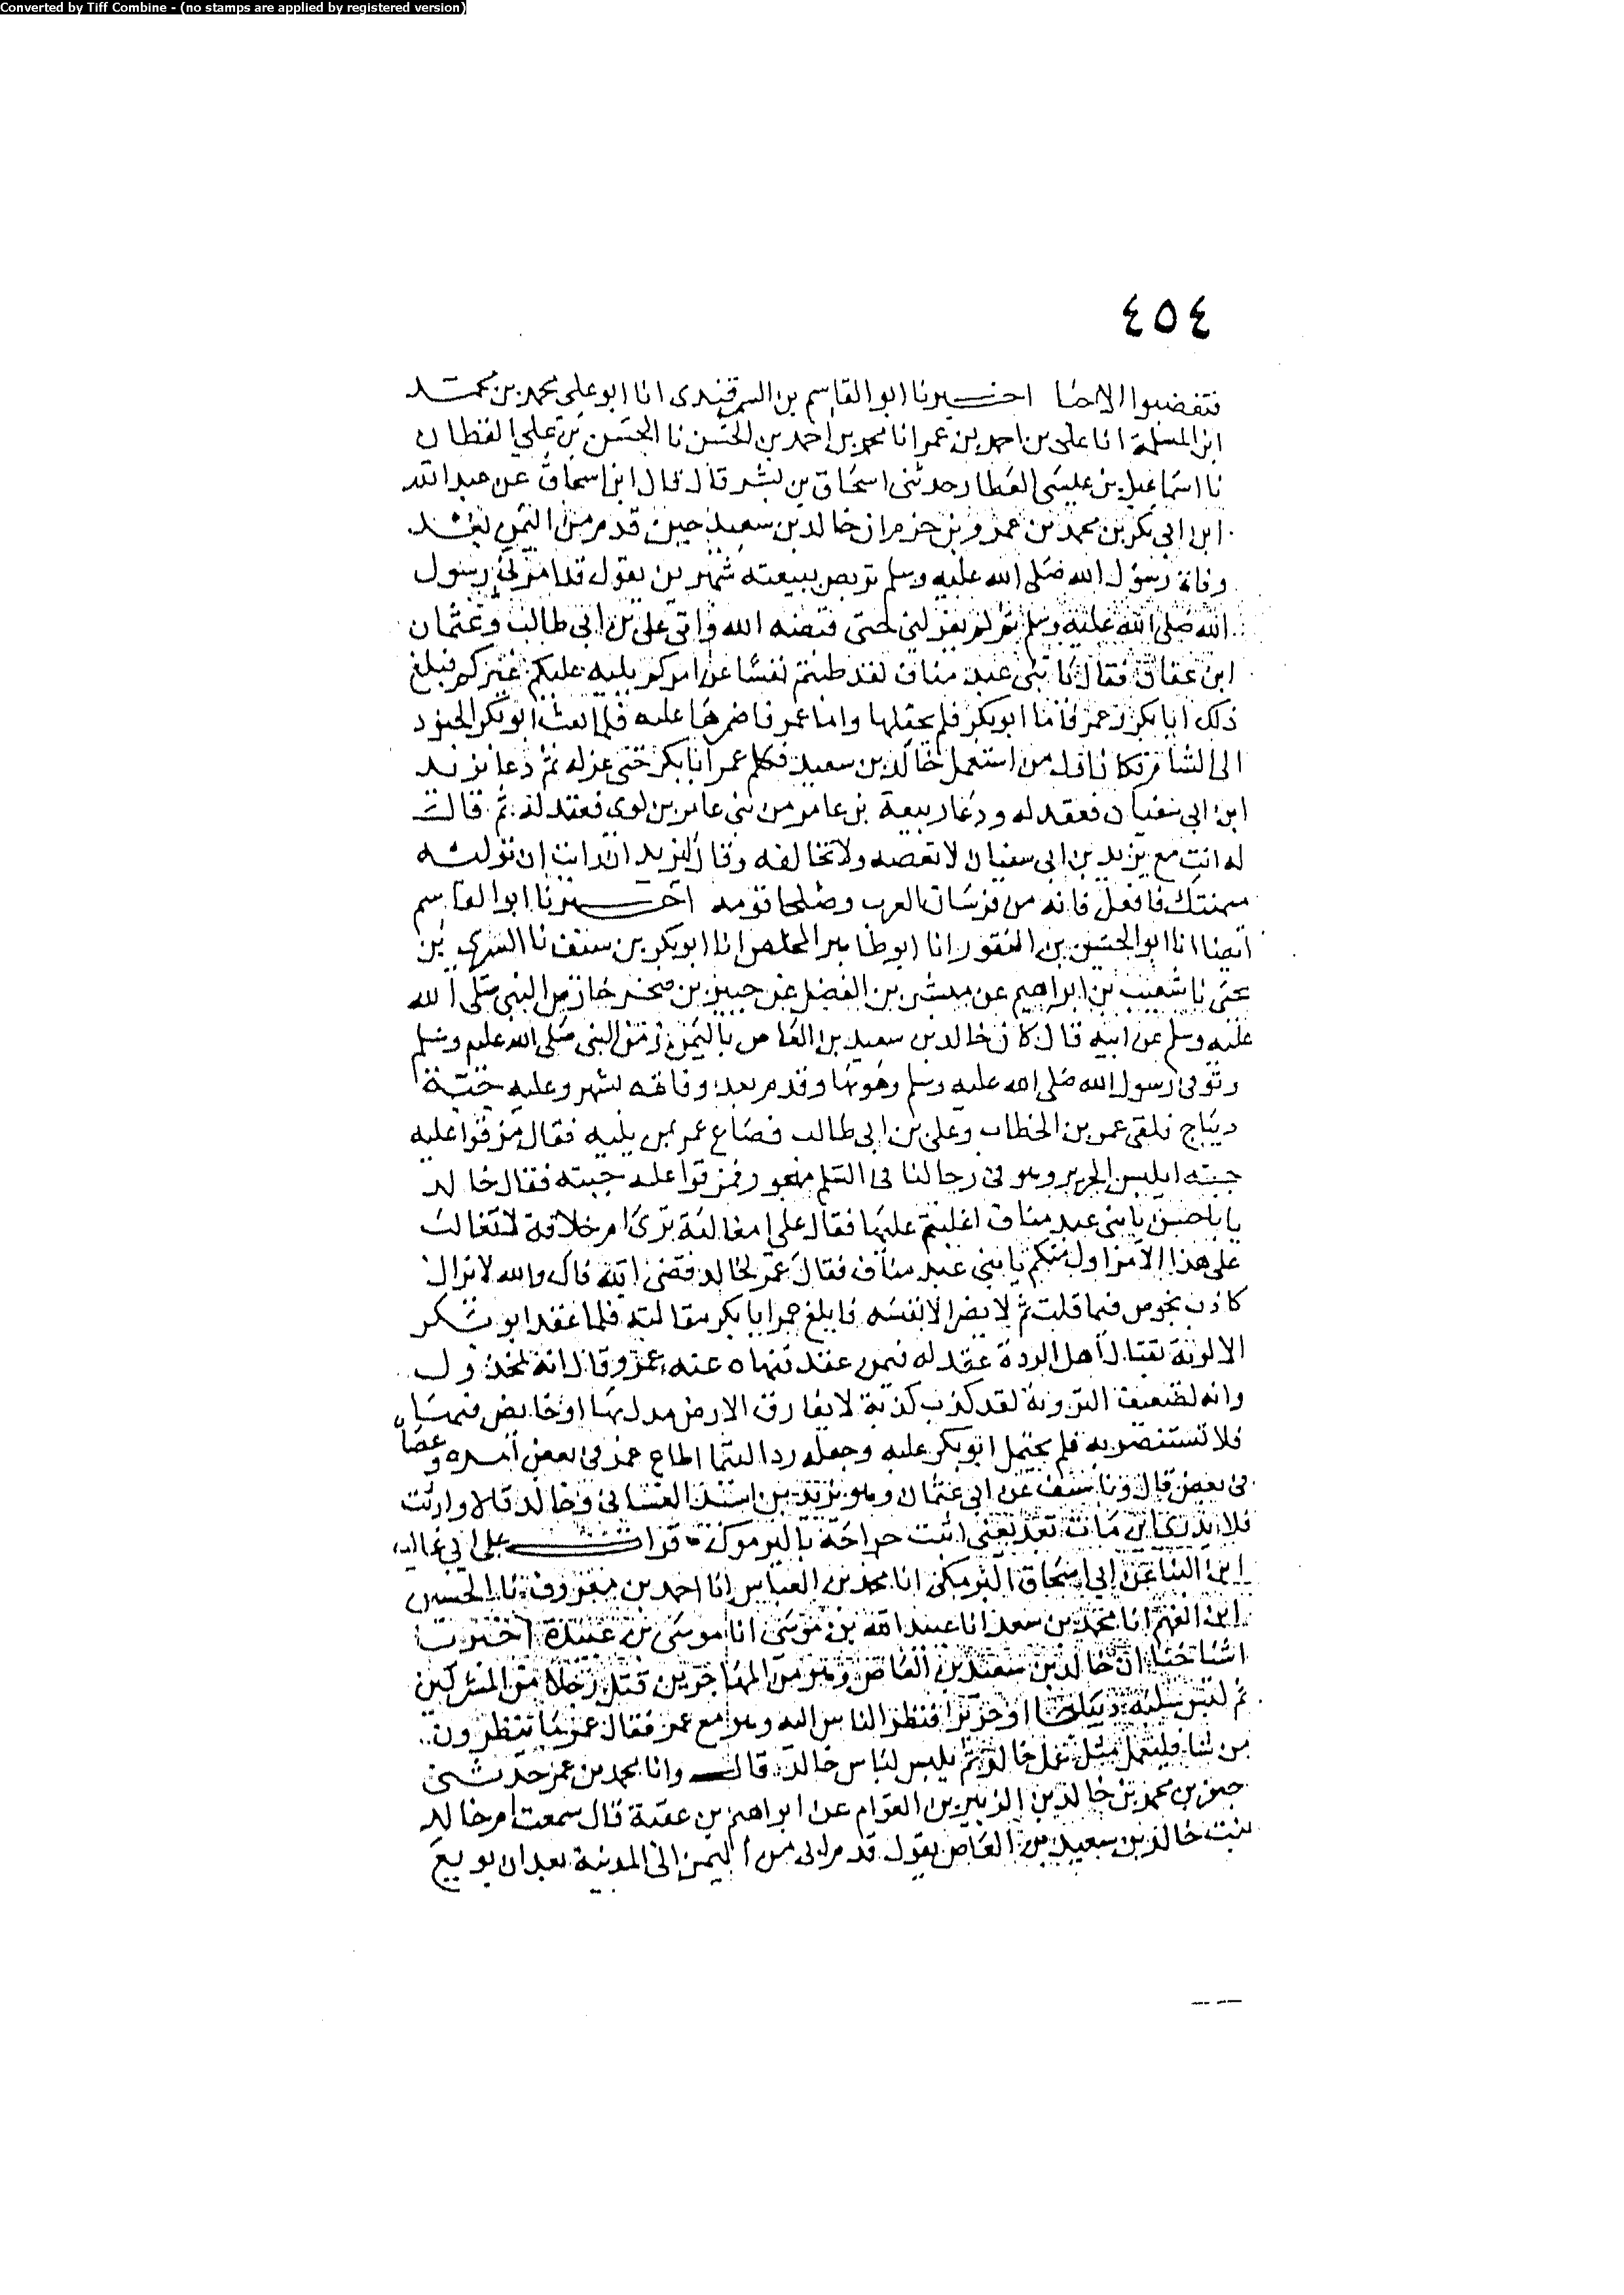 Converted by Tiff Combine - (no stamps are applied by registered version)
٤٥٤
اخبرنا ابو القاسم بن السمرقندى انا ابو على محمد بن محمد
ابن المسلمة انا على بن احمد بن عمر انا محمد بن احمد بن الحسن نا الحسن بن على القطان
نا اسماعيل بن عيسى العطار حدثنى اسحاق بن بشر قال قال ابن اسحاق عن عبد الله
ابن ابى بكر بن محمد بن عمرو بن حزم ان خالد بن سعيد حين قدم من اليمن بعد
وفاة رسول الله صلى الله عليه وسلم تربص ببيعته شهرين يقول قد امرنى رسول
الله صلى الله عليه وسلم ثم لم يعزلنى حتى قبضه الله واتى على بن ابى طالب وعثمان
ابن عفان فقال يا بنى عبد مناف لقد طبتم نفسا عن امركم يليه عليكم غيركم فبلغ
ذلك ابا بكر وعمر فاما ابو بكر فلم يحقلها واما عمر فاضمرها عليه فلما بعث ابو بكر الجنود
الى الشام فكان اول من استعمل خالد بن سعيد فكلم عمر ابا بكر حتى عزله ثم دعا يزيد
ابن ابى سفيان فعقد له ودعا ربيعة بن عامر من بنى عامر بن لوى فعقد له ثم قال
له انت مع يزيد بن ابى سفيان لا تعصه ولا تخالفه وقال ليزيد ان رايت ان توليه
ميمنتك فافعل فانه من فرسان العرب وصلحا قومه اخبرنا ابو القاسم
ايضا انا ابو الحسين بن النقور انا ابو طاهر المخلص انا ابو بكر بن سيف نا السرى بن
يحيى نا شعيب بن ابراهيم عن مبشر بن الفضل عن جبير بن صخر حارس النبى صلى الله
عليه وسلم عن ابيه قال كان خالد بن سعيد بن العاص باليمن زمن النبى صلى الله عليه وسلم
وتوفى رسول الله صلى الله عليه وسلم وهو بها وقدم بعد وفاته بشهر وعليه جبة
ديباج فلقى عمر بن الخطاب وعلى بن ابى طالب فصاح عمر بمن يليه فقال مزقوا عليه
جبته ايلبس الحرير وهو فى رجالنا فى السلم مهجور فمزقوا عليه جبته فقال خالد
يا باحسن يا بنى عبد مناف اغلبتم عليها فقال على امغالبة ترى ام خلافة لا تغالب
على هذا الامر اولى منكم يا بنى عبد مناف فقال عمر لخالد فض الله فاك والله لا يزال
كاذب يخوض فيما قلت ثم لا يضر الا نفسه فابلغ عمر ابا بكر مقالته فلما عقد ابو بكر
الالوية لقتال اهل الردة عقد له فيمن عقد فنهاه عنه عمر وقال انه لمخذول
وانه لضعيف التروية لقد كذب كذبة لا يفارق الارض مدل بها او خايض فيها
فلا تستنصر به فلم يحتمل ابو بكر عليه وجعله ردا بتيما اطاع عمر فى بعض امره وعصاه
فى بعض قال ونا سيف عن ابى عثمان وهو يزيد بن اسيد الغسانى وخالد قالا وارتث
فلا يدرى اين مات بعد يعنى اثبت جراحة باليرموك قرات على ابى غالب
ابن البنا عن ابى اسحاق البرمكى انا محمد بن العباس انا احمد بن معروف نا الحسين
ابن الفهم انا محمد بن سعد انا عبيد الله بن موسى انا موسى بن عبيدة اخبرت
اشياخنا ان خالد بن سعيد بن العاص وهو من المهاجرين قتل رجلا من المشركين
ثم لبس سلبه ديباجا او حريرا فنظر الناس اليه وهو مع عمر فقال عمر ما تنظرون
من شا فليعمل مثل عمل خالد ثم يلبس لباس خالد قال وانا محمد بن عمر حدثنى
جعفر بن محمد بن خالد بن الزبير بن العوام عن ابراهيم بن عقبة قال سمعت ام خالد
بنت خالد بن سعيد بن العاص يقول قدم ابى من اليمن الى المدينة بعد ان بويع